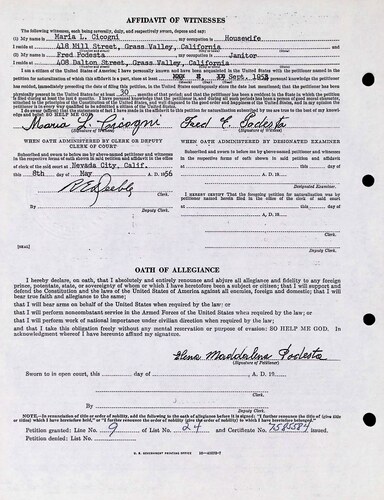 AFFIDAVIT OF WITNESSES
The following witnesses, each being severally, duly, and respectively sworn, depose and say:
(1) My name is Maria L. Cicogni my occupation is Housewife
I reside at 418 Mill Street, Grass Valley, California and
(2) My name is Fred Podesta my occupation is Janitor
I reside at 408 Dalton Street, Grass Valley, California
I am a citizen of the United States of America; I have personally known and have been acquainted in the United States with the petitioner named in the
petition for naturalization of which this affidavit is a part, since at least Sept. 1953
has resided, immediately preceding the date of filing this petition, in the United States continuously since the date last mentioned; that the petitioner has been
physically present in the United States for at least 30 months of that period; and that the petitioner has been a resident in the State in which the petition
attached to the principles of the Constitution of the United States, and well disposed to the good order and happiness of the United States, and in my opinion the
petitioner is in every way qualified to be admitted a citizen of the United States.
I do swear (affirm) that the statements of fact I have made in this affidavit to this petition for naturalization subscribed by me are true to the best of my knowledge
and belief: SO HELP ME GOD.
Maria L. Cicogni Fred E. Podesta
(Signature of Witness) (Signature of Witness)
WHEN OATH ADMINISTERED BY CLERK OR DEPUTY CLERK OF COURT
Subscribed and sworn to before me by above-named petitioner and witnesses
in the respective forms of oath shown in said petition and affidavit in the office
of the clerk of said court at Nevada City, Calif.
this 8th day of May A. D. 1956
Clerk.
By
Deputy Clerk.
[SEAL]
WHEN OATH ADMINISTERED BY DESIGNATED EXAMINER
Subscribed and sworn to before me by above-named petitioner and witnesses
in the respective forms of oath shown in said petition and affidavit
at
this day of , A. D. 19
Designated Examiner.
I HEREBY CERTIFY That the foregoing petition for naturalization was by
petitioner named herein filed in the office of the clerk of said court
at
this day of , A. D. 19
Clerk.
By
Deputy Clerk.
OATH OF ALLEGIANCE
I hereby declare, on oath, that I absolutely and entirely renounce and abjure all allegiance and fidelity to any foreign
prince, potentate, state, or sovereignty of whom or which I have heretofore been a subject or citizen; that I will support and
defend the Constitution and the laws of the United States of America against all enemies, foreign and domestic; that I will
bear true faith and allegiance to the same;
that I will bear arms on behalf of the United States when required by the law; or
that I will perform noncombatant service in the Armed Forces of the United States when required by the law; or
that I will perform work of national importance under civilian direction when required by the law;
and that I take this obligation freely without any mental reservation or purpose of evasion: SO HELP ME GOD. In
acknowledgment whereof I have hereunto affixed my signature.
Elena Maddalina Podesta
(Signature of Petitioner)
Sworn to in open court, this day of , A. D. 19
Clerk.
By
Deputy Clerk.
NOTE.—In renunciation of title or order of nobility, add the following to the oath of allegiance before it is signed: "I further renounce the title of (give title
or titles) which I have heretofore held," or "I further renounce the order of nobility (give the order of nobility) to which I have heretofore belonged."
Petition granted: Line No. 9 of List No. 24 and Certificate No. 7585584 issued.
Petition denied: List No.
U. S. GOVERNMENT PRINTING OFFICE